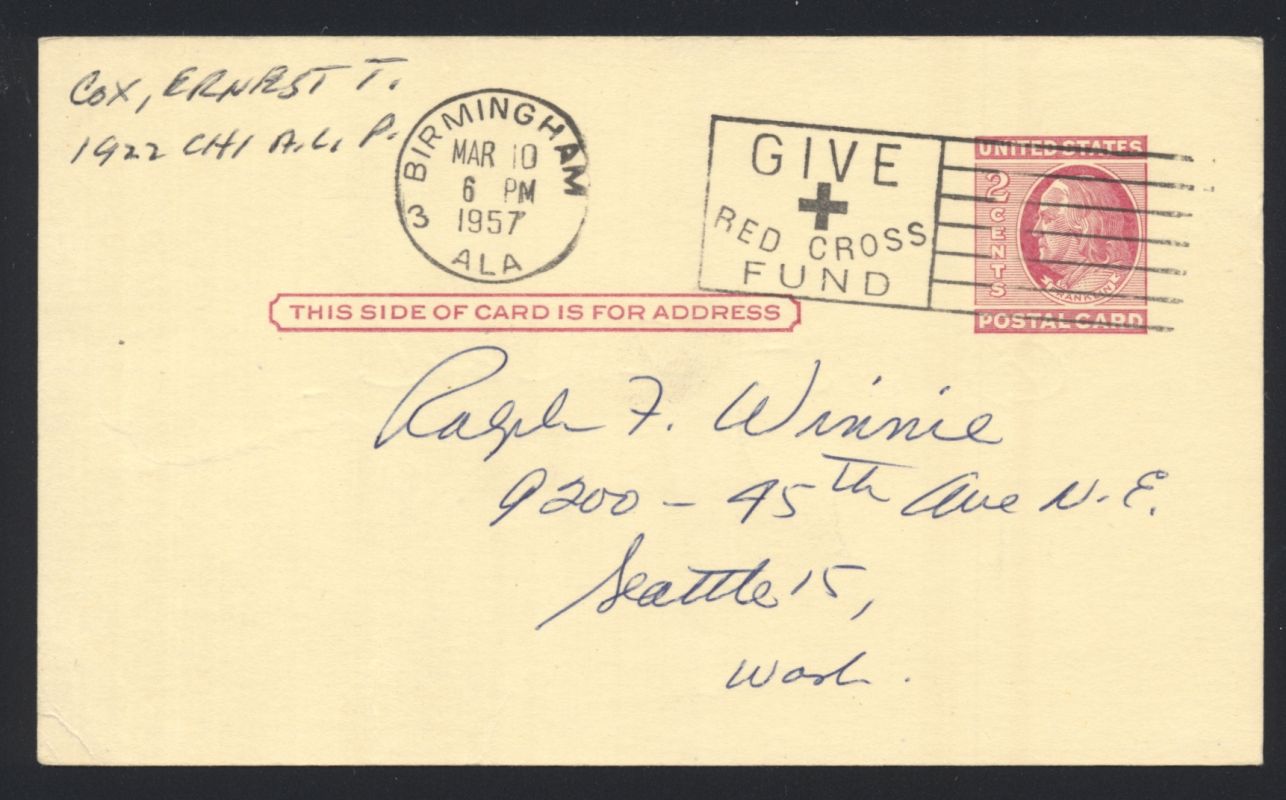 COX, ERNEST T.
1922 CHI A.L. P.
BIRMINGHAM
MAR 10
6 PM
1957
3
ALA
GIVE
RED CROSS
FUND
UNITED STATES
2 CENTS
FRANKLIN
POSTAL CARD
THIS SIDE OF CARD IS FOR ADDRESS
Ralph F. Winnie
9200 - 45th Ave N.E.
Seattle 15,
Wash.